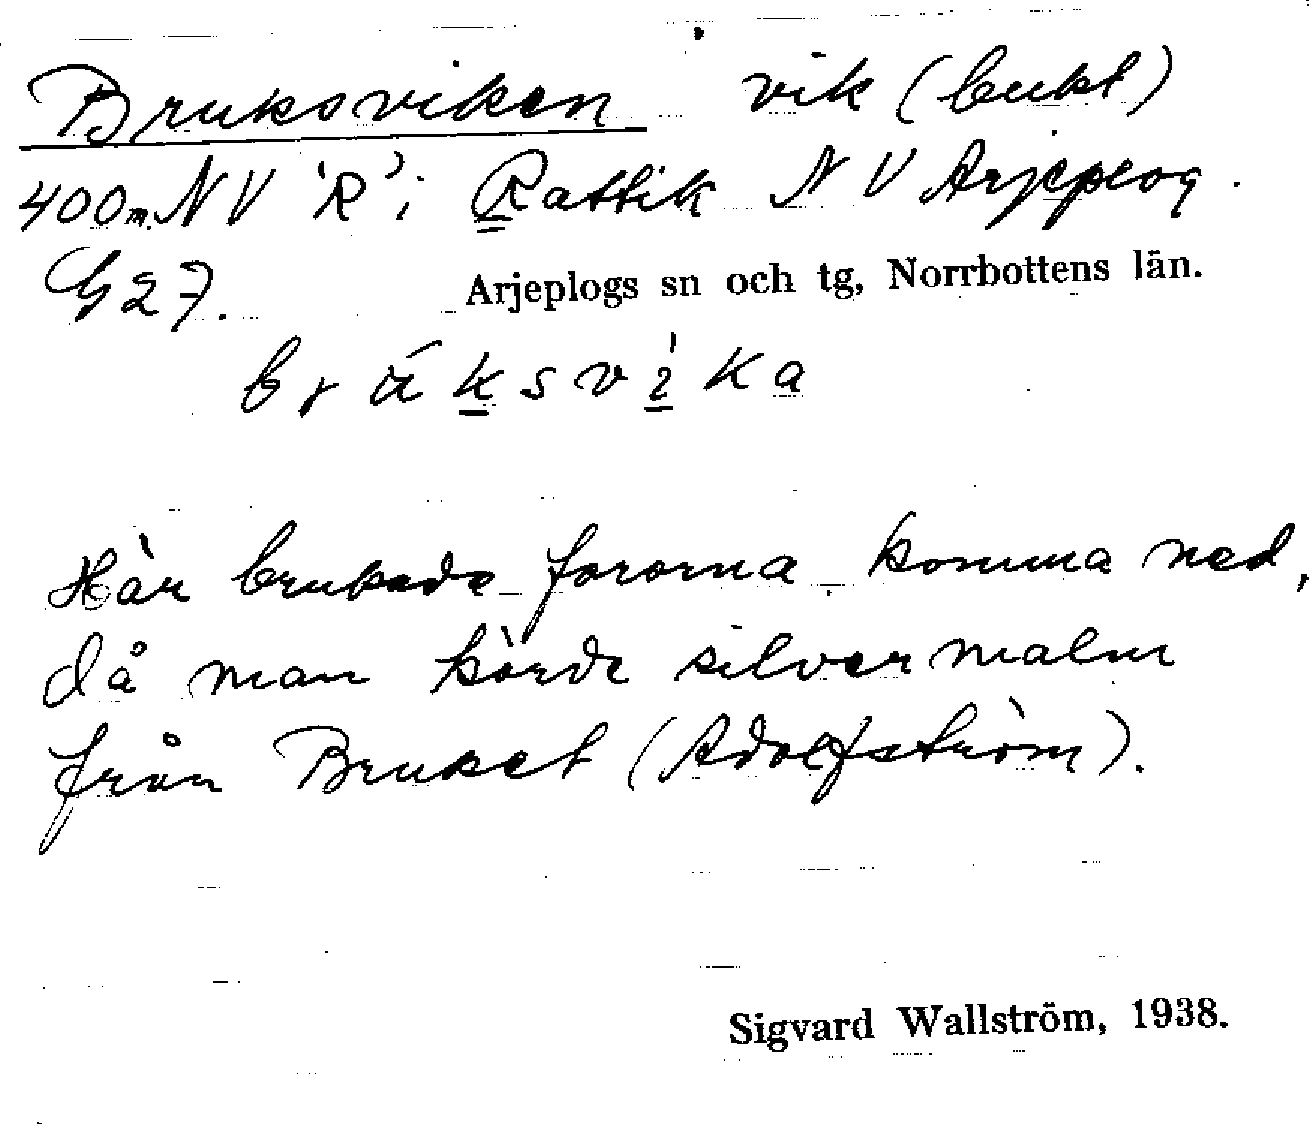 Bruksviken vik (bukt)
400m NV 'R' i Rattik NV Arjeplog.
G27.
Arjeplogs sn och tg, Norrbottens län.
brúksvika
Här brukade fororna komma ned,
då man körde silvermalm
från Bruket (Adolfström).
Sigvard Wallström, 1938.